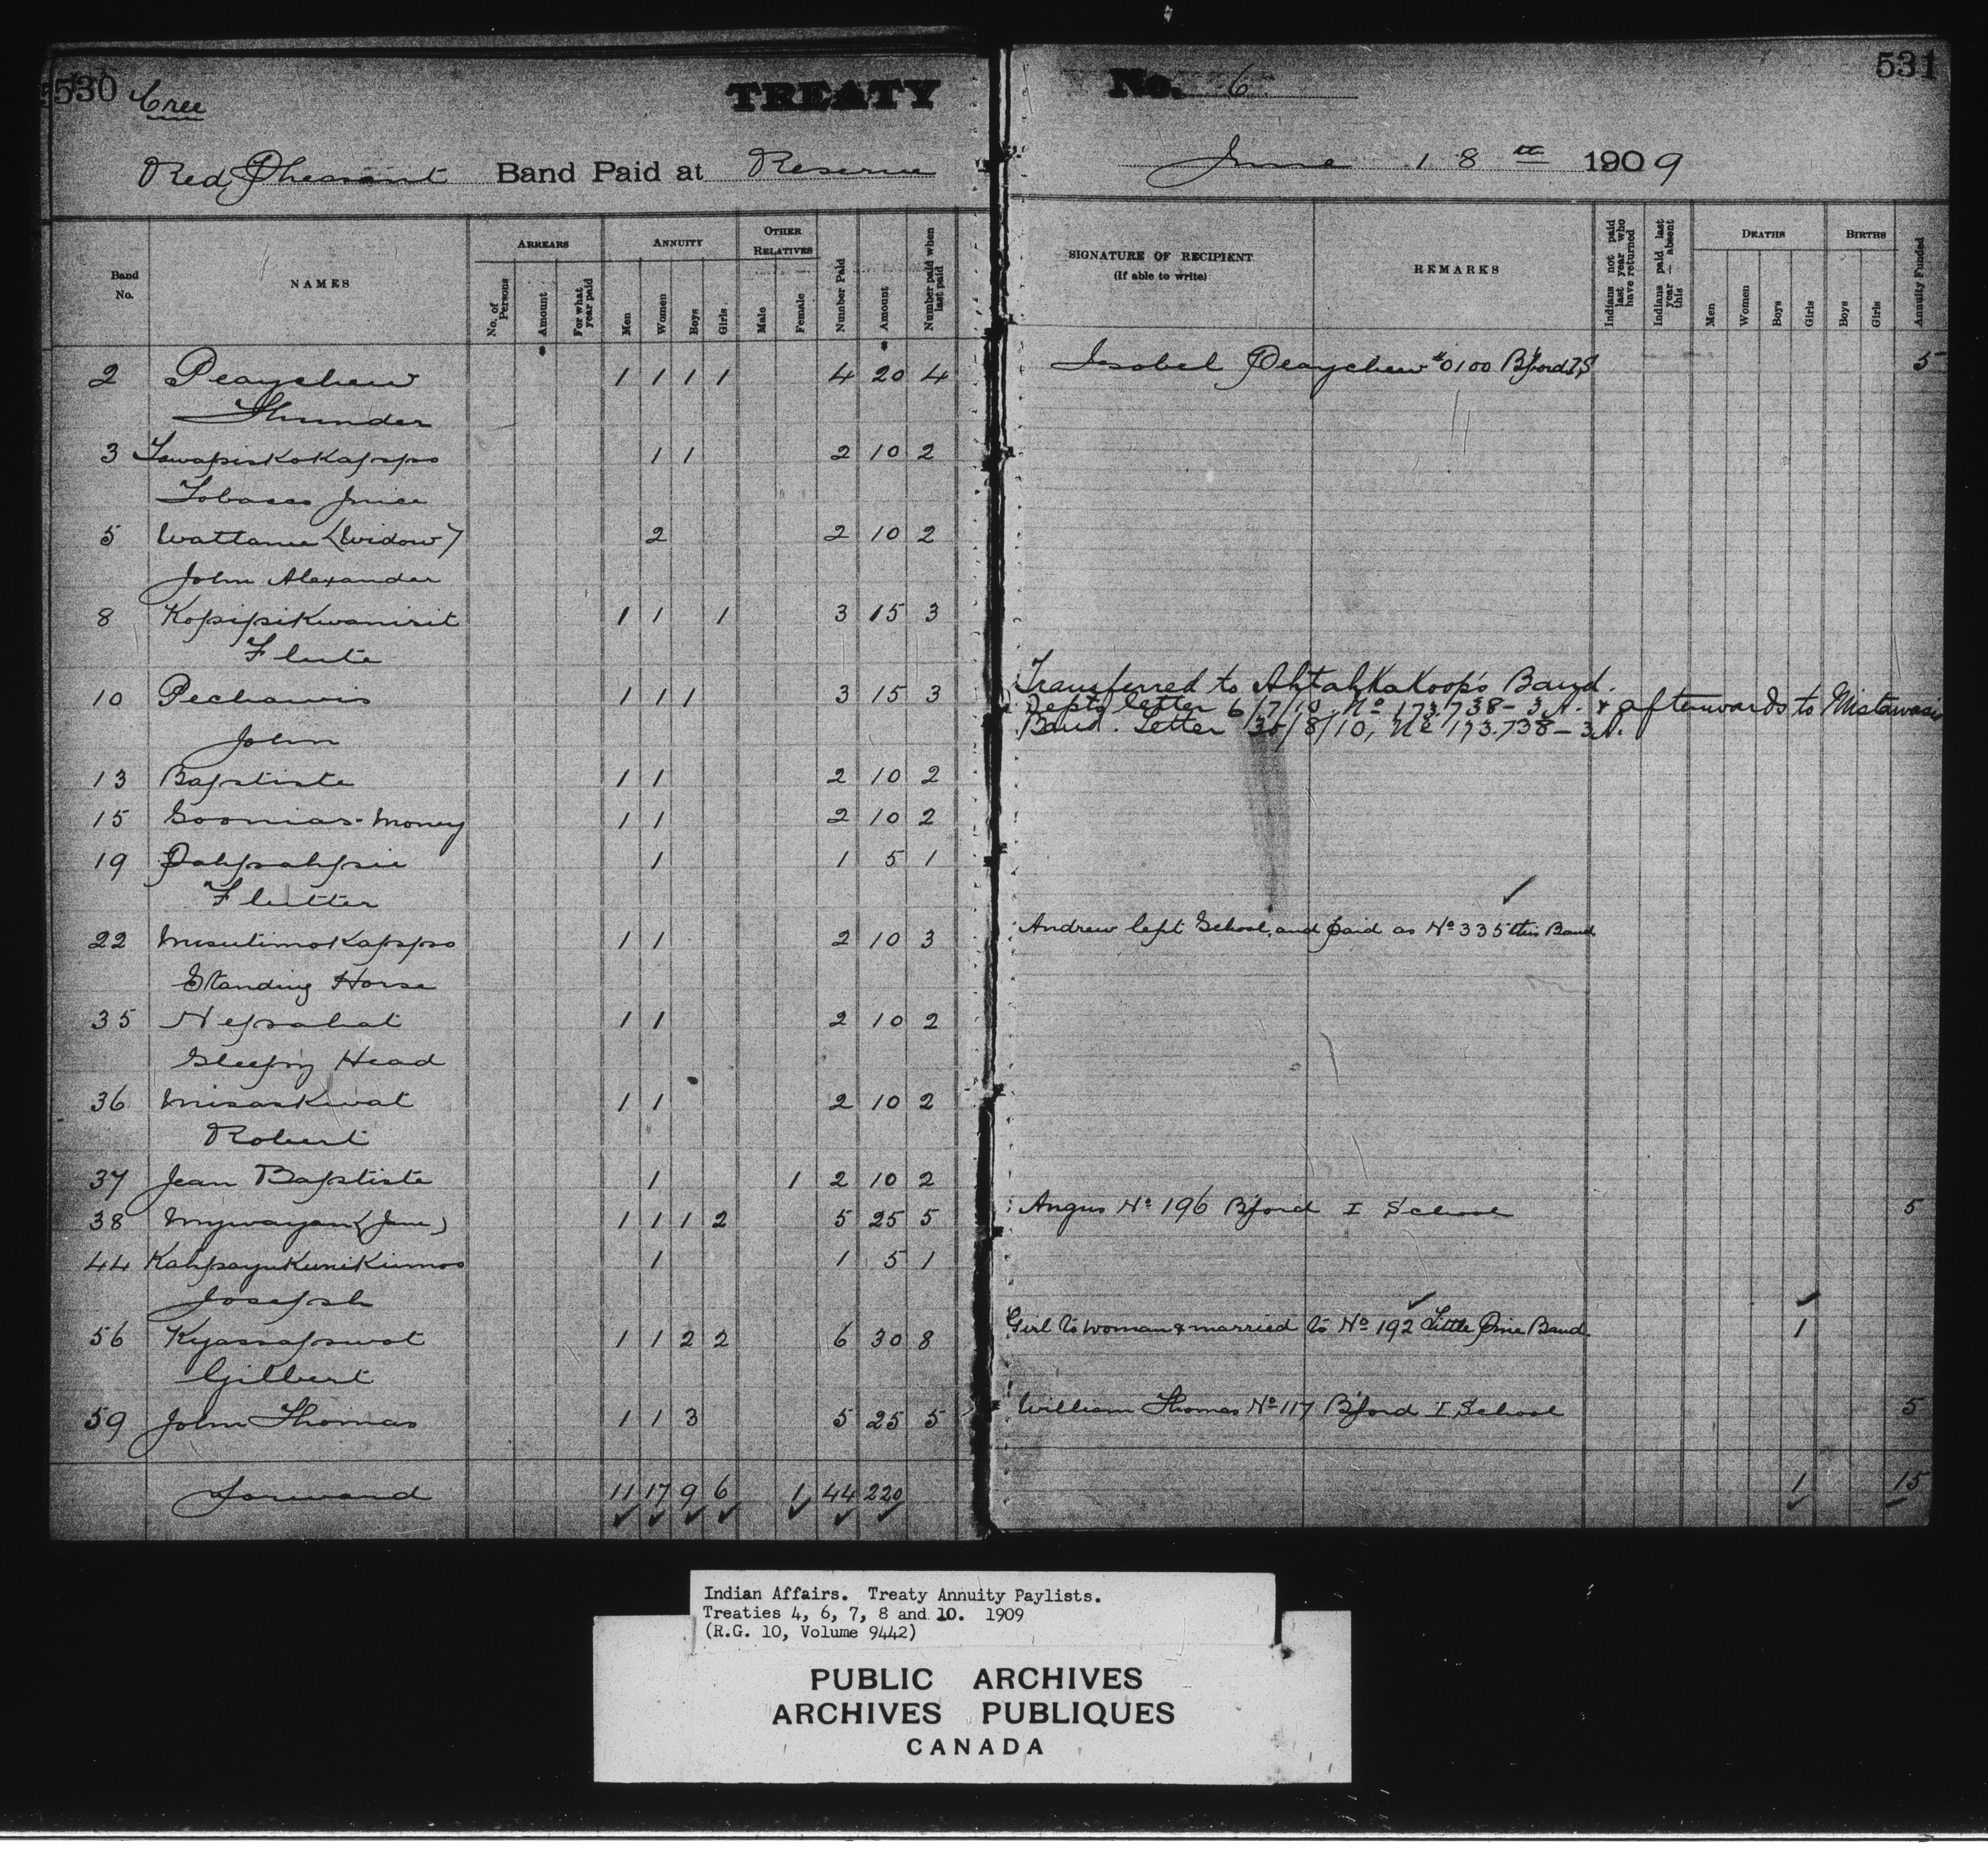 530 Cree TREATY
Red Pheasant Band Paid at Reserve
Band No. NAMES ARREARS No. of Persons Amount For what year paid ANNUITY Men Women Boys Girls OTHER RELATIVES Male Female Number Paid Amount Number paid when last paid
2 Peaychew 1 1 1 1 4 20 4
Thunder
3 1 1 2 10 2
Tobacco Juice
5 Wattanee (Widow) 2 2 10 2
John Alexander
8 Kopipikwanirit 1 1 1 3 15 3
Flute
10 Pechawis 1 1 1 3 15 3
John
13 Baptiste 1 1 2 10 2
15 Soonias-Money 1 1 2 10 2
19 Pahpahpie 1 1 5 1
Flutter
22 Misutimokappo 1 1 2 10 3
Standing Horse
35 Nepahat 1 1 2 10 2
Sleepy Head
36 Misaskwat 1 1 2 10 2
Robert
37 Jean Baptiste 1 1 2 10 2
38 Mywayan (Jane) 1 1 1 2 5 25 5
44 Kahpayukunikumoo 1 1 5 1
Joseph
56 Kyassapwot 1 1 2 2 6 30 8
Gilbert
59 John Thomas 1 1 3 5 25 5
Forward 11 17 9 6 1 44 220
No. 6 531
June 18th 1909
SIGNATURE OF RECIPIENT (If able to write) REMARKS Indians not paid last year who have returned Indians paid last year — absent this DEATHS Men Women Boys Girls BIRTHS Boys Girls Annuity Funded
Isobel Peaychew #0100 B'ford I,S 5
Transferred to Ahtahkakoop's Band.
Depts letter 6/7/10, No 173.738-3A. & afterwards to Mistawasis
Band. Letter 30/8/10, No 173.738-3A.
Andrew left School, and paid as No 335 this Band.
Angus No 196 B'ford I School 5
Girl to woman & married to No 192 Little Pine Band. 1
William Thomas No 117 B'ford I School 5
1 15
Indian Affairs. Treaty Annuity Paylists.
Treaties 4, 6, 7, 8 and 10. 1909
(R.G. 10, Volume 9442)
PUBLIC ARCHIVES
ARCHIVES PUBLIQUES
CANADA